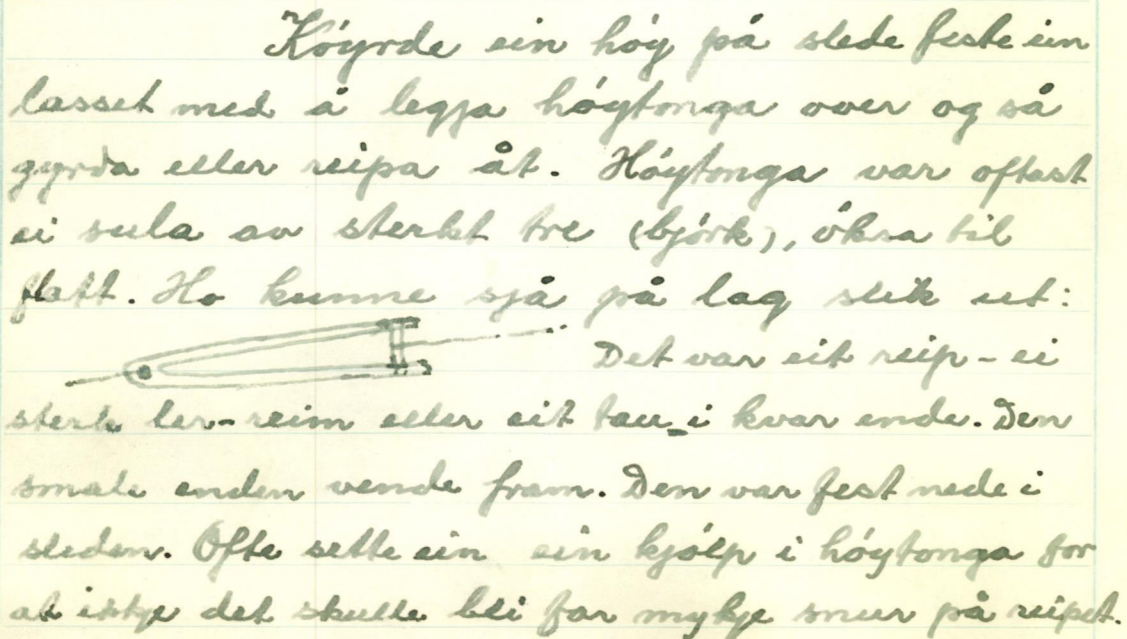 Köyrde ein höy på slede feste ein
lasset med å legja höytonga over og så
gyrda eller reipa åt. Höytonga var oftast
ei sula av sterkt tre (björk), öksa til
flatt. Ho kunne sjå på lag slik ut:
Det var eit reip - ei
sterk ler-reim eller eit tau - i kvar ende. Den
smale enden vende fram. Den var fest nede i
sleden. Ofte sette ein ein kjölp i höytonga for
at ikkje det skulle bli for mykje snur på reipet.